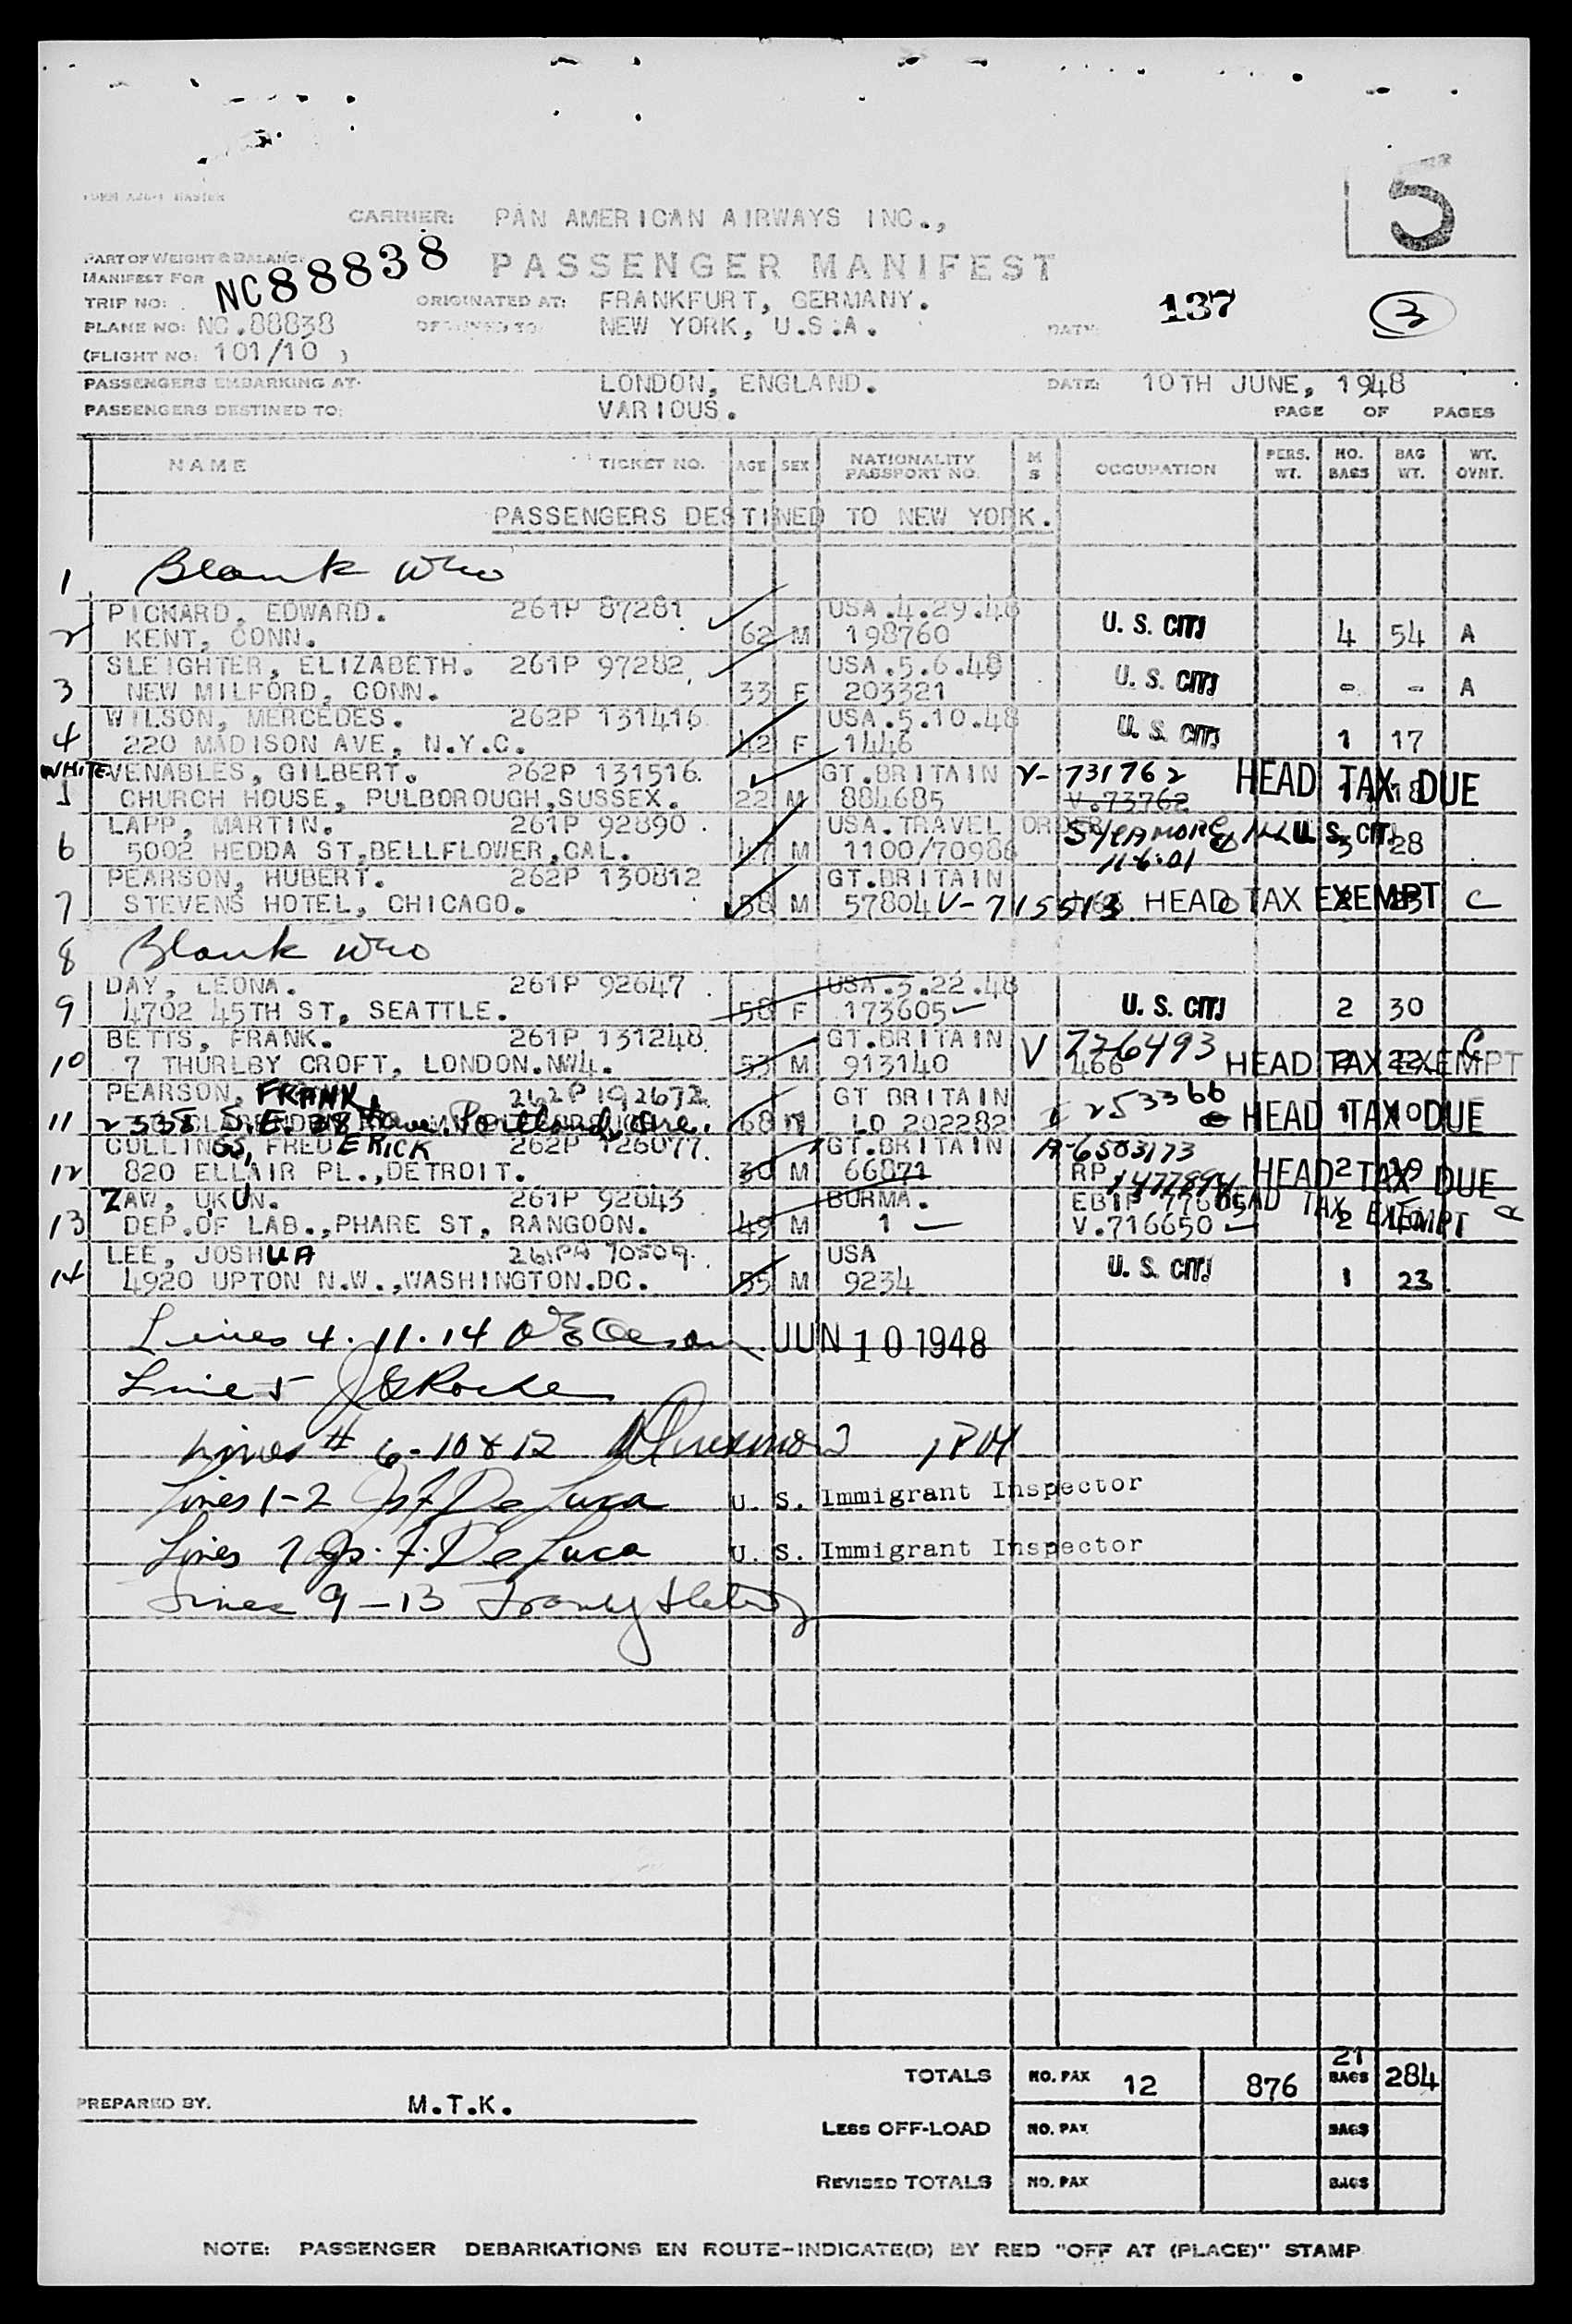 5
CARRIER: PAN AMERICAN AIRWAYS INC.,
PART OF WEIGHT & BALANCE
MANIFEST FOR NC88838 PASSENGER MANIFEST
TRIP NO: ORIGINATED AT: FRANKFURT, GERMANY. 137 3
PLANE NO: NC.88838 DESTINED TO: NEW YORK, U.S.A. DATE:
(FLIGHT NO: 101/10 )
PASSENGERS EMBARKING AT: LONDON, ENGLAND. DATE: 10TH JUNE, 1948
PASSENGERS DESTINED TO: VARIOUS. PAGE OF PAGES
NAME TICKET NO. AGE SEX NATIONALITY PASSPORT NO. M S OCCUPATION PERS. WT. NO. BAGS BAG WT. WT. OVNT.
PASSENGERS DESTINED TO NEW YORK.
1 Blank
PICKARD, EDWARD. 261P 87281 USA.4.29.48 U. S. CITI
2 KENT, CONN. 62 M 198760 4 54 A
SLEIGHTER, ELIZABETH. 261P 97282 USA.5.6.48 U. S. CITI
3 NEW MILFORD, CONN. 33 F 203321 - - A
WILSON, MERCEDES. 262P 131416 USA.5.10.48 U. S. CITI
4 220 MADISON AVE, N.Y.C. 42 F 1446 1 17
WHITE VENABLES, GILBERT. 262P 131516 GT.BRITAIN V-731762 HEAD TAX DUE
5 CHURCH HOUSE, PULBOROUGH,SUSSEX. 22 M 884685 V.73762 1 18
LAPP, MARTIN. 261P 92890 USA.TRAVEL ORDER SYCAMORE ILL U. S. CITI
6 5002 HEDDA ST,BELLFLOWER,CAL. 47 M 1100/70986 11-6-01 3 28
PEARSON, HUBERT. 262P 130812 GT.BRITAIN
7 STEVENS HOTEL, CHICAGO. 58 M 57804 V-715513 HEAD TAX EXEMPT C
8 Blank
DAY, LEONA. 261P 92647 USA.5.22.48 U. S. CITI
9 4702 45TH ST, SEATTLE. 58 F 173605 2 30
BETTS, FRANK. 261P 131248 GT.BRITAIN V 726493 C
10 7 THURLBY CROFT, LONDON.NW4. 53 M 913140 466 HEAD TAX EXEMPT 2 22
PEARSON, FRANK, 262P 192672 GT BRITAIN I 253366
11 2538 S.E. 28 Ave. Portland, Ore. 68 M LO 202282 HEAD TAX DUE
COLLINGS, FREDERICK 262P 126077 GT.BRITAIN A-6503173
12 820 ELLAIR PL.,DETROIT. 30 M 66871 RP HEAD TAX DUE 2 19
ZAW, UKUN. 261P 92643 BURMA. HEAD TAX EXEMPT
13 DEP.OF LAB.,PHARE ST, RANGOON. 49 M 1 V.716650 2
LEE, JOSHUA USA U. S. CITI
14 4920 UPTON N.W.,WASHINGTON.DC. 55 M 9234 1 23
Lines 4. 11. 14 JUN 10 1948
Line 5 Roche
Lines # 6-10 & 12
Lines 1-2 Js. F. De Luca U. S. Immigrant Inspector
Lines 7 Js. F. De Luca U. S. Immigrant Inspector
Lines 9-13
TOTALS NO. PAX 12 876 21 BAGS 284
PREPARED BY. M.T.K.
LESS OFF-LOAD NO. PAX BAGS
REVISED TOTALS NO. PAX BAGS
NOTE: PASSENGER DEBARKATIONS EN ROUTE-INDICATE(D) BY RED "OFF AT (PLACE)" STAMP